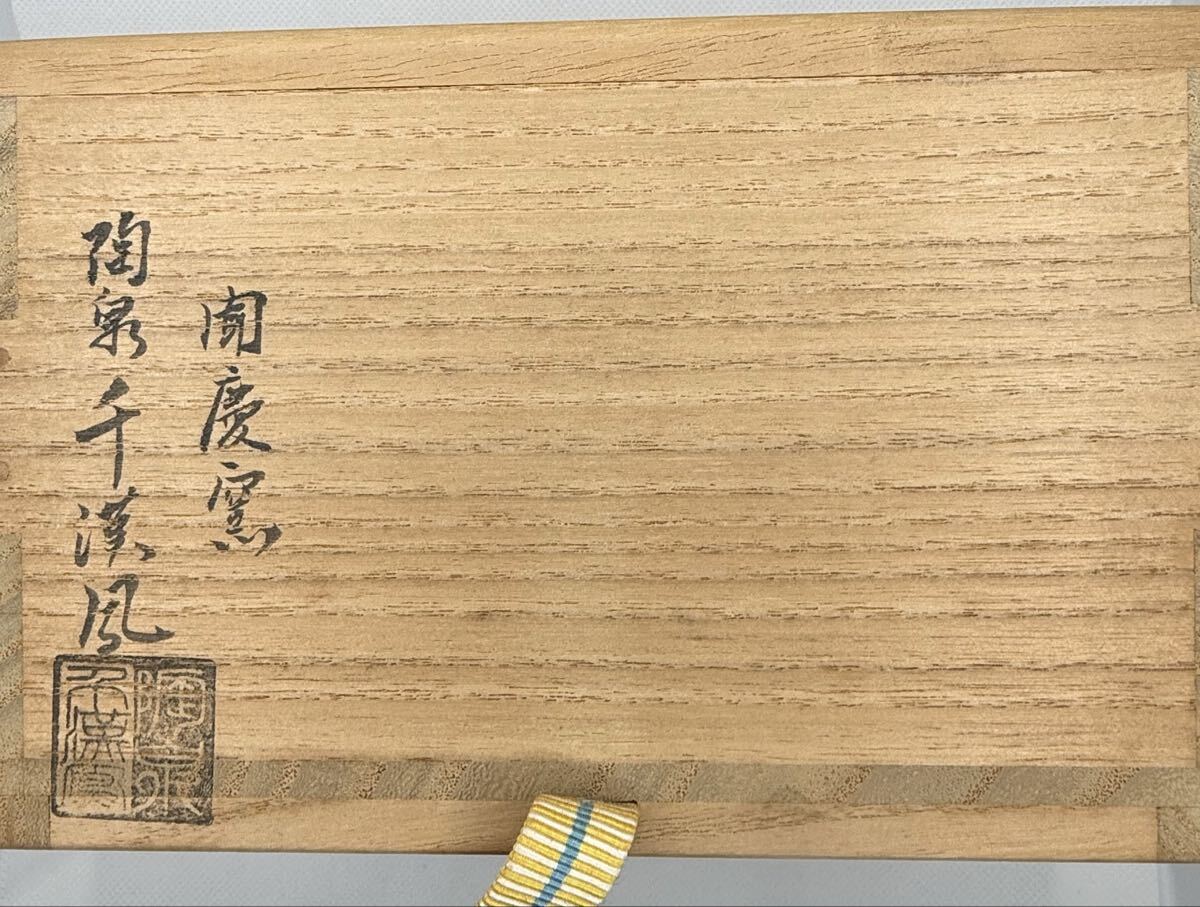 聞慶窯
陶泉 千漢鳳
陶泉
千漢鳳